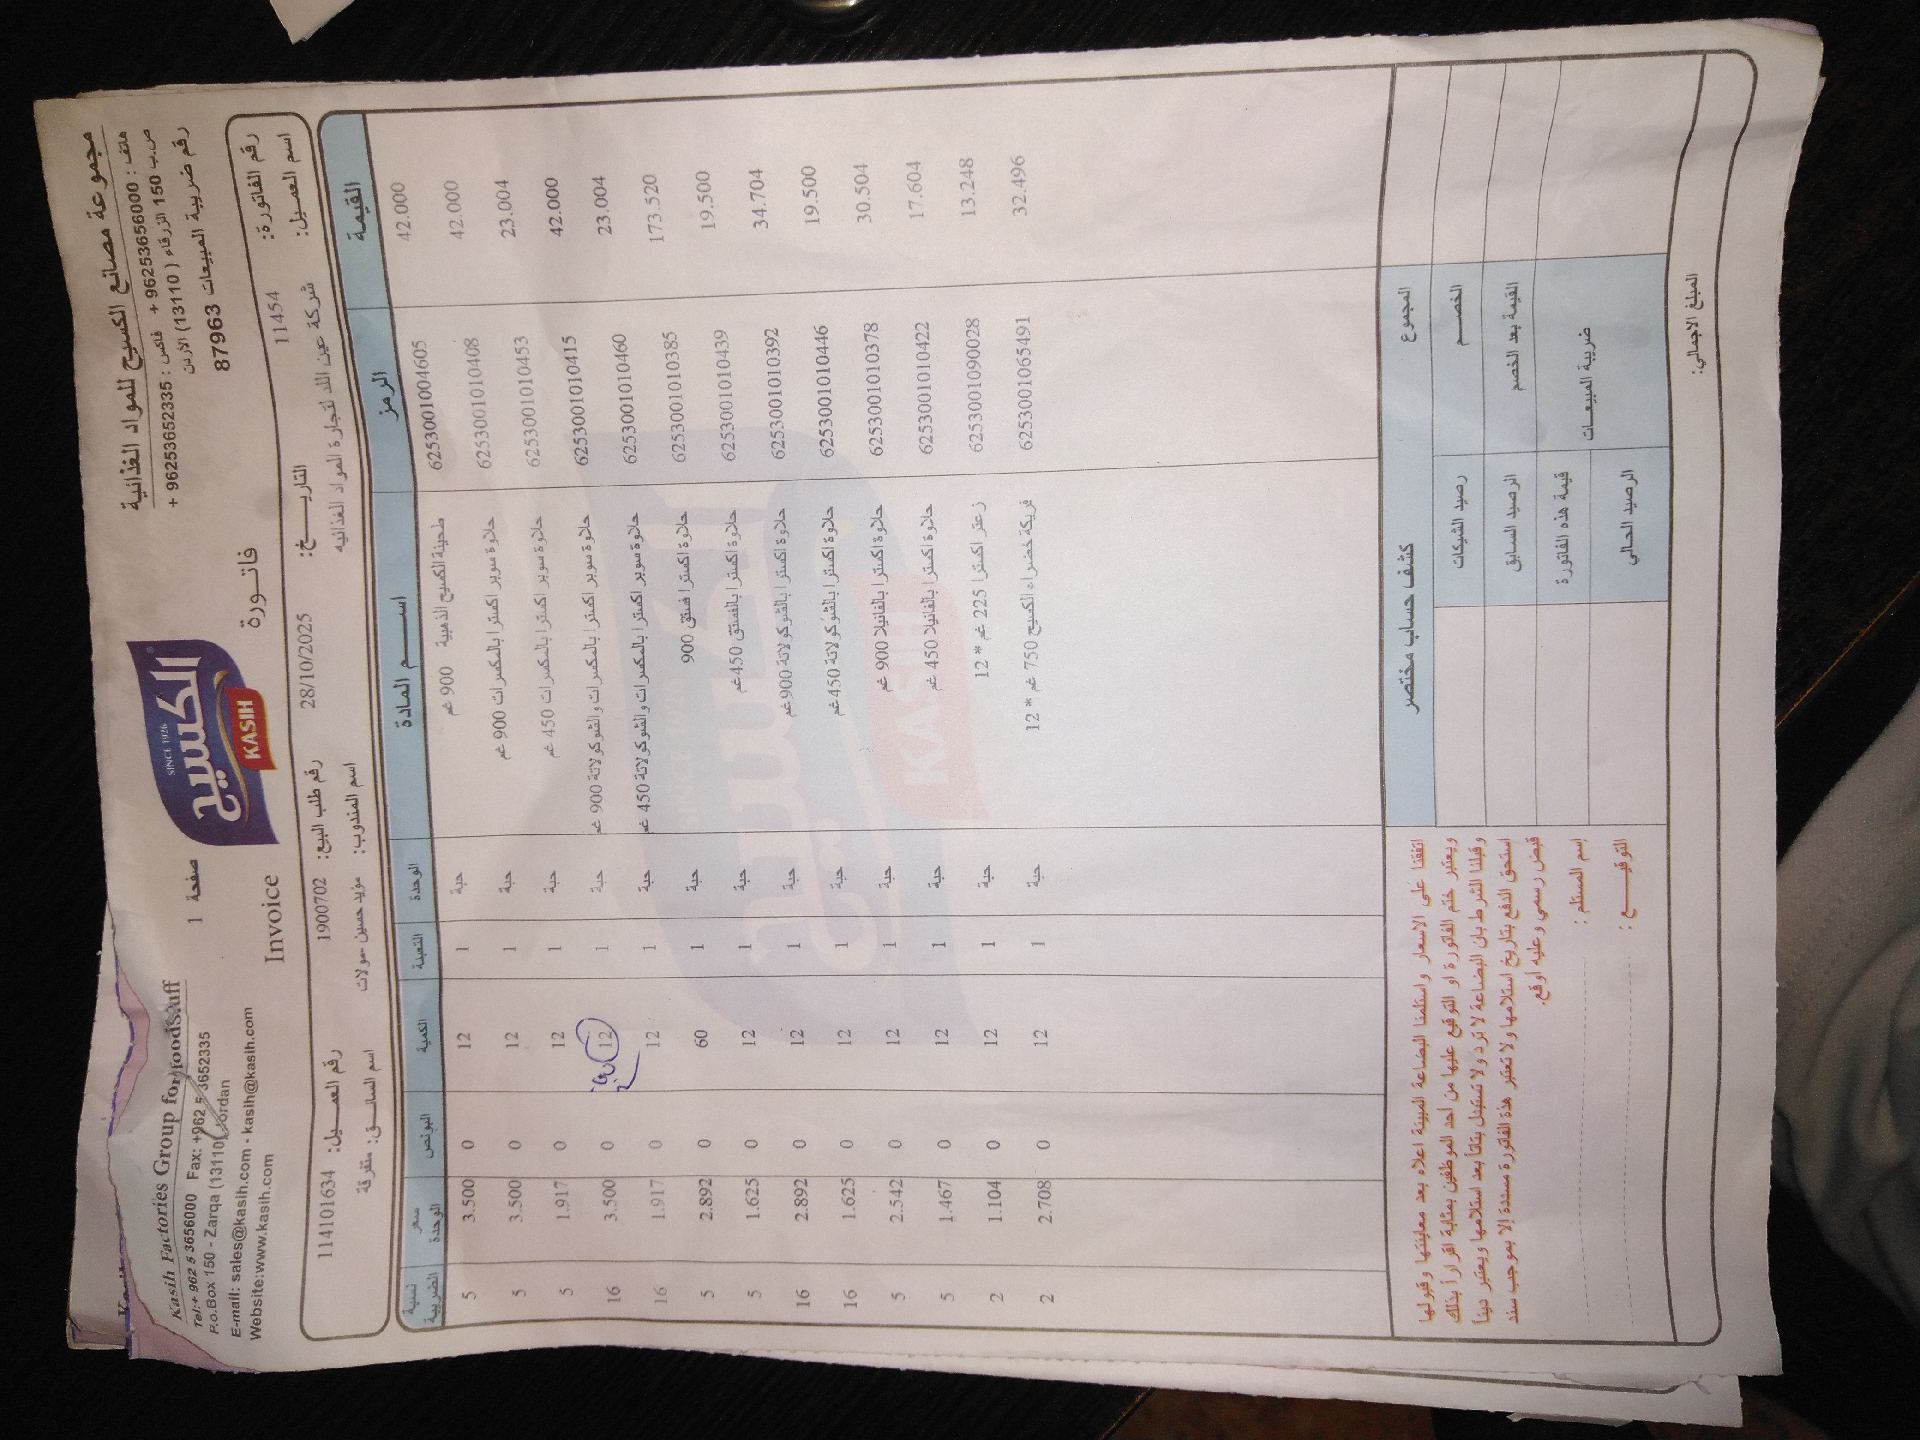 Kasih Factories Group for foodstuff
Tel:+ 962 5 3656000 Fax: +962 5 3652335
P.o.Box 150 - Zarqa (13110) Jordan
E-mail: sales@kasih.com - kasih@kasih.com
Website:www.kasih.com
صفحة 1
SINCE 1926
الكسيح
KASIH
مجموعة مصانع الكسيح للمواد الغذائية
هاتف : 96253656000 + فاكس : 96253652335 +
ص.ب 150 الزرقاء ( 13110) الأردن
رقم ضريبة المبيعات 87963
Invoice فاتـورة
رقم الفاتورة: 11454 التاريـــخ: 28/10/2025 رقم طلب البيع: 1900702 رقم العميـــل: 114101634
اسم العميـل: شركة عين اللد لتجارة المواد الغذائيه اسم المندوب: مؤيد حسين -مولات اسم السائــق: متفرقة
القيمة الرمز اســـم المادة الوحدة التعبئة الكمية البونص سعر الوحدة نسبة الضريبة
42.000 6253001004605 طحينة الكسيح الذهبية 900 غم حبة 1 12 0 3.500 5
42.000 6253001010408 حلاوة سوبر اكسترا بالمكسرات 900 غم حبة 1 12 0 3.500 5
23.004 6253001010453 حلاوة سوبر اكسترا بالمكسرات 450 غم حبة 1 12 0 1.917 5
42.000 6253001010415 حلاوة سوبر اكسترا بالمكسرات والشوكولاتة 900 غم حبة 1 12 0 3.500 16
23.004 6253001010460 حلاوة سوبر اكسترا بالمكسرات والشوكولاتة 450 غم حبة 1 12 0 1.917 16
173.520 6253001010385 حلاوة اكسترا فستق 900 حبة 1 60 0 2.892 5
19.500 6253001010439 حلاوة اكسترا بالفستق 450 غم حبة 1 12 0 1.625 5
34.704 6253001010392 حلاوة اكسترا بالشوكولاتة 900 غم حبة 1 12 0 2.892 16
19.500 6253001010446 حلاوة اكسترا بالشوكولاتة 450 غم حبة 1 12 0 1.625 16
30.504 6253001010378 حلاوة اكسترا بالفانيلا 900 غم حبة 1 12 0 2.542 5
17.604 6253001010422 حلاوة اكسترا بالفانيلا 450 غم حبة 1 12 0 1.467 5
13.248 6253001090028 زعتر اكسترا 225 غم * 12 حبة 1 12 0 1.104 2
32.496 6253001065491 فريكة خضراء الكسيح 750 غم * 12 حبة 1 12 0 2.708 2
المجموع
الخصـــم
القيمة بعد الخصم
ضريبة المبيعـــات
كشف حساب مختصر
رصيد الشيكات
الرصيد السابق
قيمة هذه الفاتورة
الرصيد الحالي
اتفقنا على الاسعار واستلمنا البضاعة المبينة اعلاه بعد معاينتها وقبولها
ويعتبر ختم الفاتورة او التوقيع عليها من احد الموظفين بمثابة اقراراً بذلك
وقبلنا الشرط بان البضاعة لا ترد ولا تستبدل بتاتاً بعد استلامها ويعتبر ديناً
استحق الدفع بتاريخ استلامها ولا تعتبر هذه الفاتورة مسددة إلا بموجب سند
قبض رسمي وعليه أوقع.
إسم المستلم :
التوقيـــــع :
المبلغ الاجمالي: